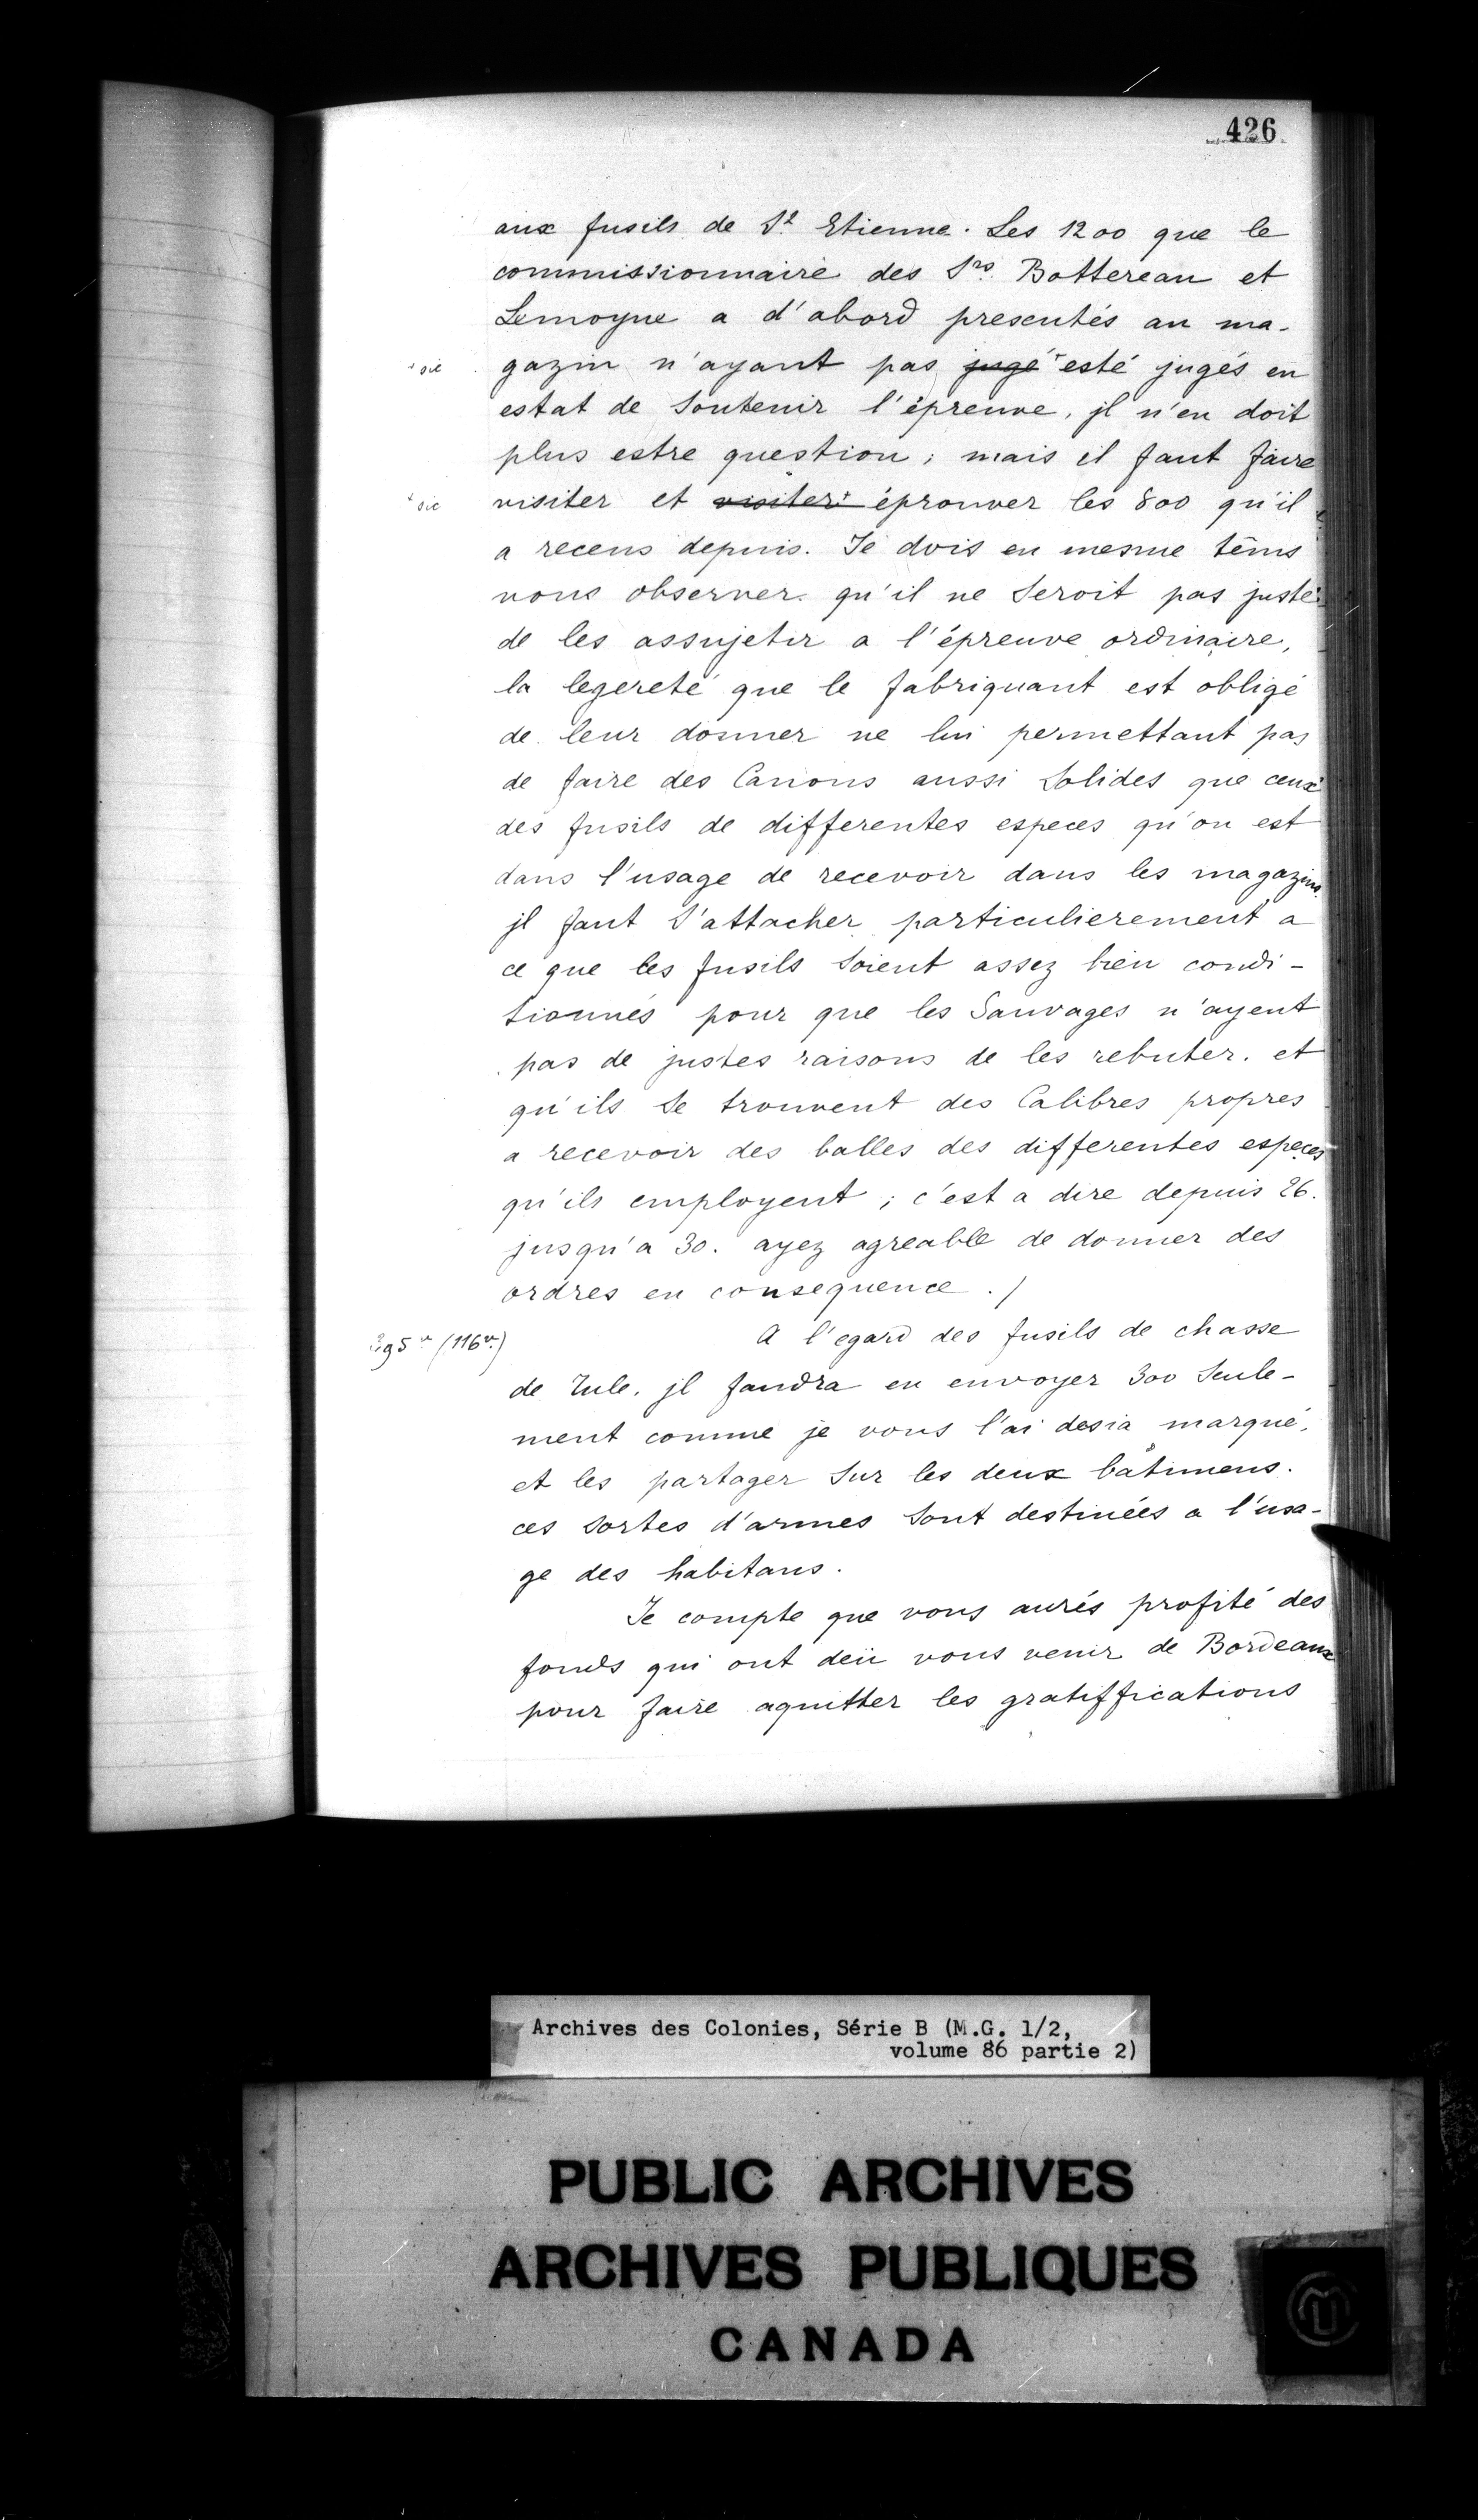 426
aux fusils de St Etienne. Les 1200 que le
commissionnaire des Srs Bottereau et
Lemoyne a d'abord presentés au ma-
+ sic gazin n'ayant pas jugé + esté jugés en
estat de soutenir l'épreuve, jl n'en doit
plus estre question; mais il faut faire
+ sic visiter et visiter + éprouver les 800 qu'il
a receus depuis. Je dois en mesme têms
vous observer qu'il ne seroit pas juste
de les assujetir a l'épreuve ordinaire,
la legereté que le fabriquant est obligé
de leur donner ne lui permettant pas
de faire des Canons aussi solides que ceux
des fusils de differentes especes qu'on est
dans l'usage de recevoir dans les magazins
jl faut s'attacher particulierement a
ce que les fusils soient assez bien condi-
tionnés pour que les Sauvages n'ayent
pas de justes raisons de les rebuter. et
qu'ils se trouvent des Calibres propres
a recevoir des balles des differentes especes
qu'ils employent; c'est a dire depuis 26.
jusqu'a 30. ayez agreable de donner des
ordres en consequence ./
(116v.) A l'egard des fusils de chasse
de Tule. jl faudra en envoyer 300 seule-
ment comme je vous l'ai desia marqué,
et les partager sur les deux bâtimens.
ces sortes d'armes sont destinées a l'usa-
ge des habitans.
Je compte que vous aurés profité des
fonds qui ont deü vous venir de Bordeaux
pour faire aquitter les gratiffications
Archives des Colonies, Série B (M.G. 1/2,
volume 86 partie 2)
PUBLIC ARCHIVES
ARCHIVES PUBLIQUES
CANADA